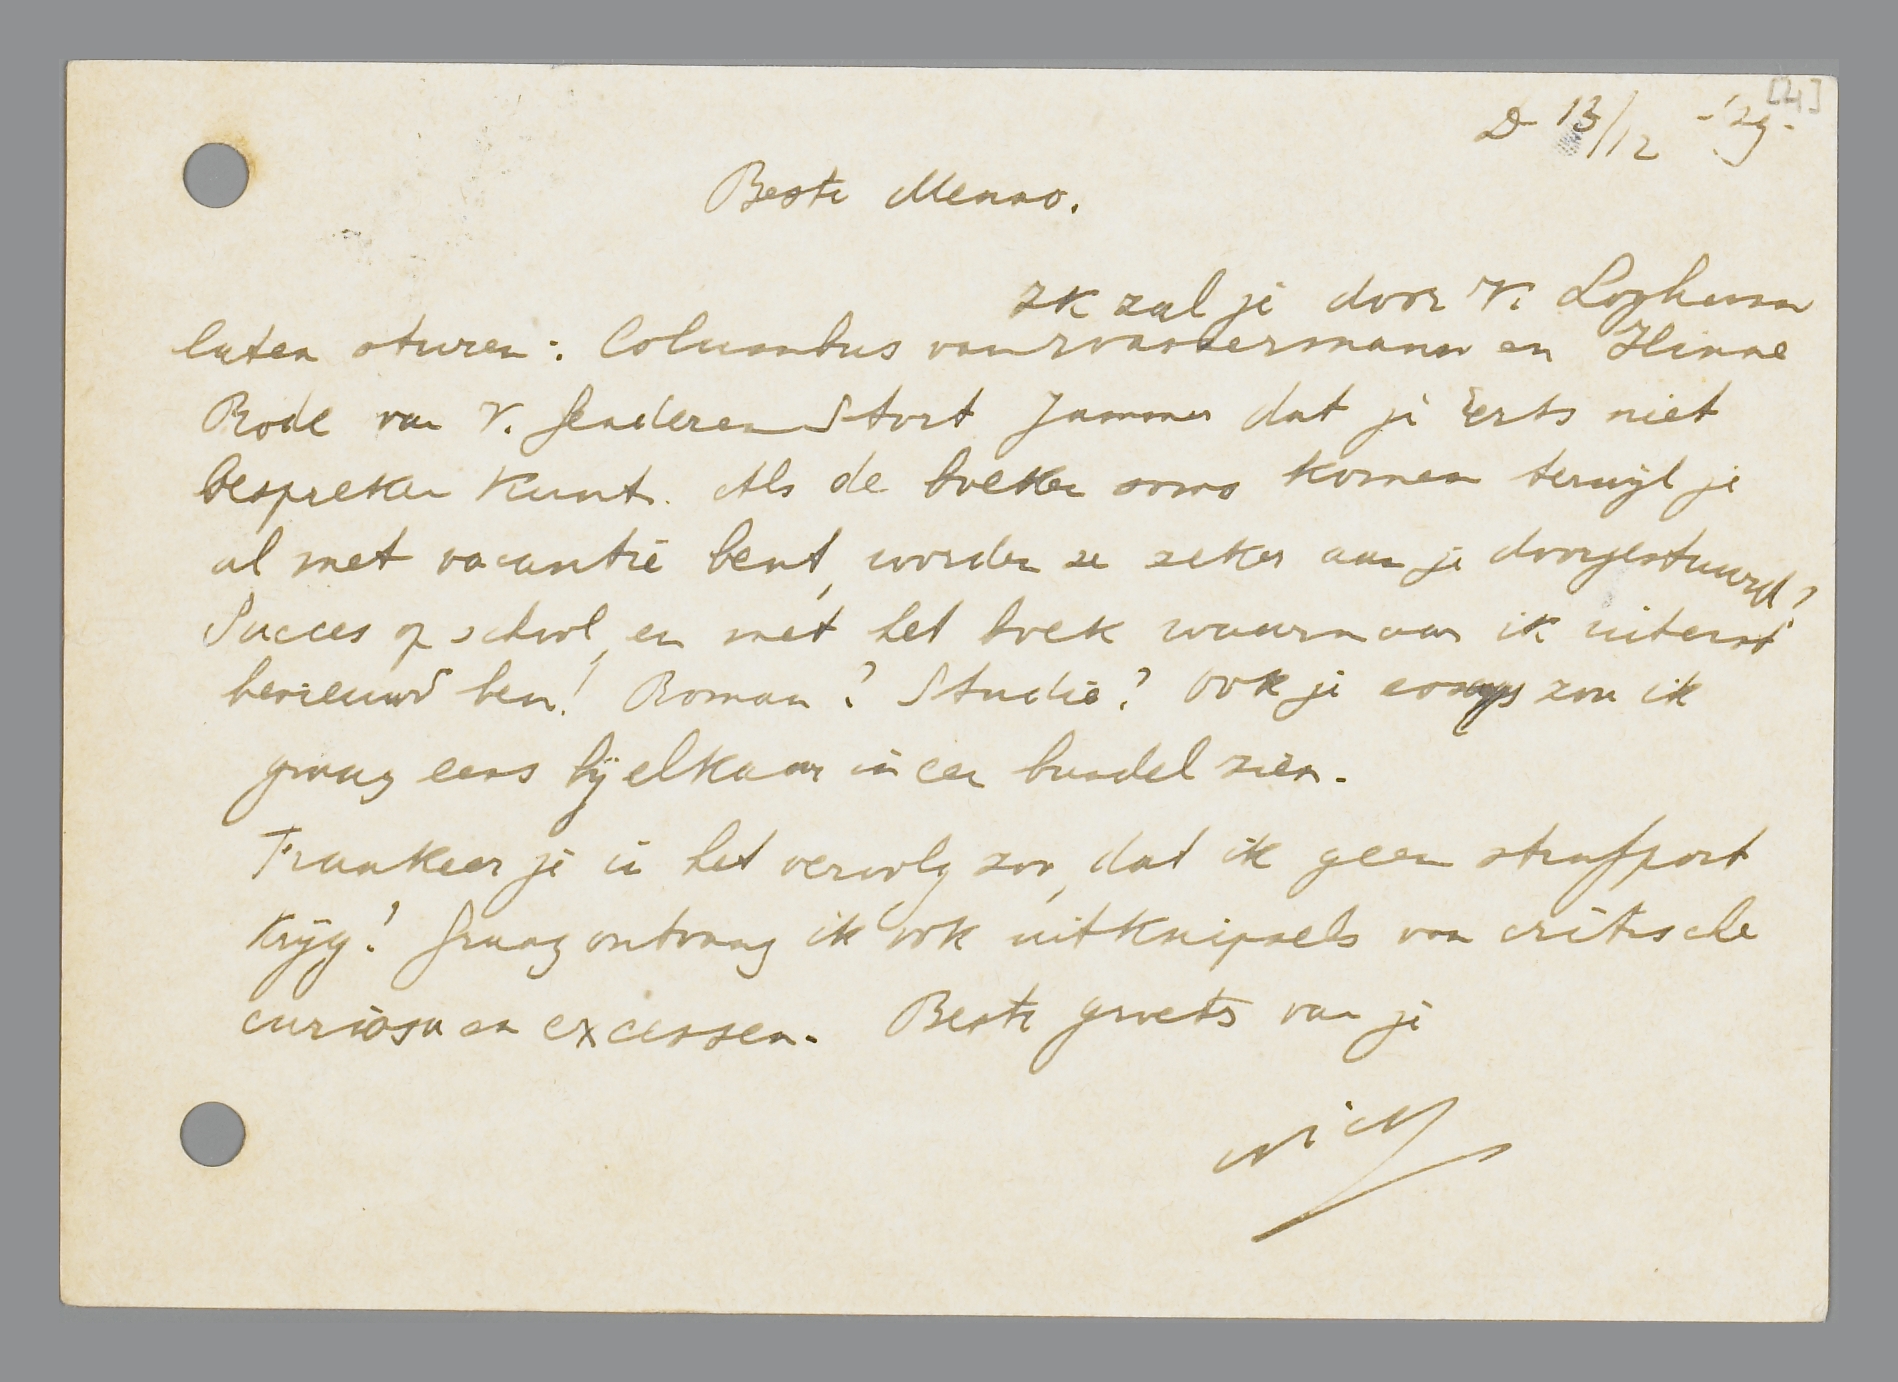 [4]
D 13/12 -'29-
Beste Menno.
Ik zal je door v. Loghum
laten sturen: Columbus van Wassermann en Hinne
Rode van v. Genderen Stort Jammer dat je Erts niet
bespreken kunt. Als de boeken soms komen terwijl je
al met vacantie bent, worden ze zeker aan je doorgestuurd?
Succes op school, en met het boek waarnaar ik uiterst
benieuwd ben! Roman? Studie? Ook je essays zou ik
graag eens bij elkaar in een bundel zien.
Frankeer je in het vervolg zoo, dat ik geen strafport
krijg! Graag ontvang ik ook uitknipsels van critische
curiosa en excessen. Beste groeten van je
Nico